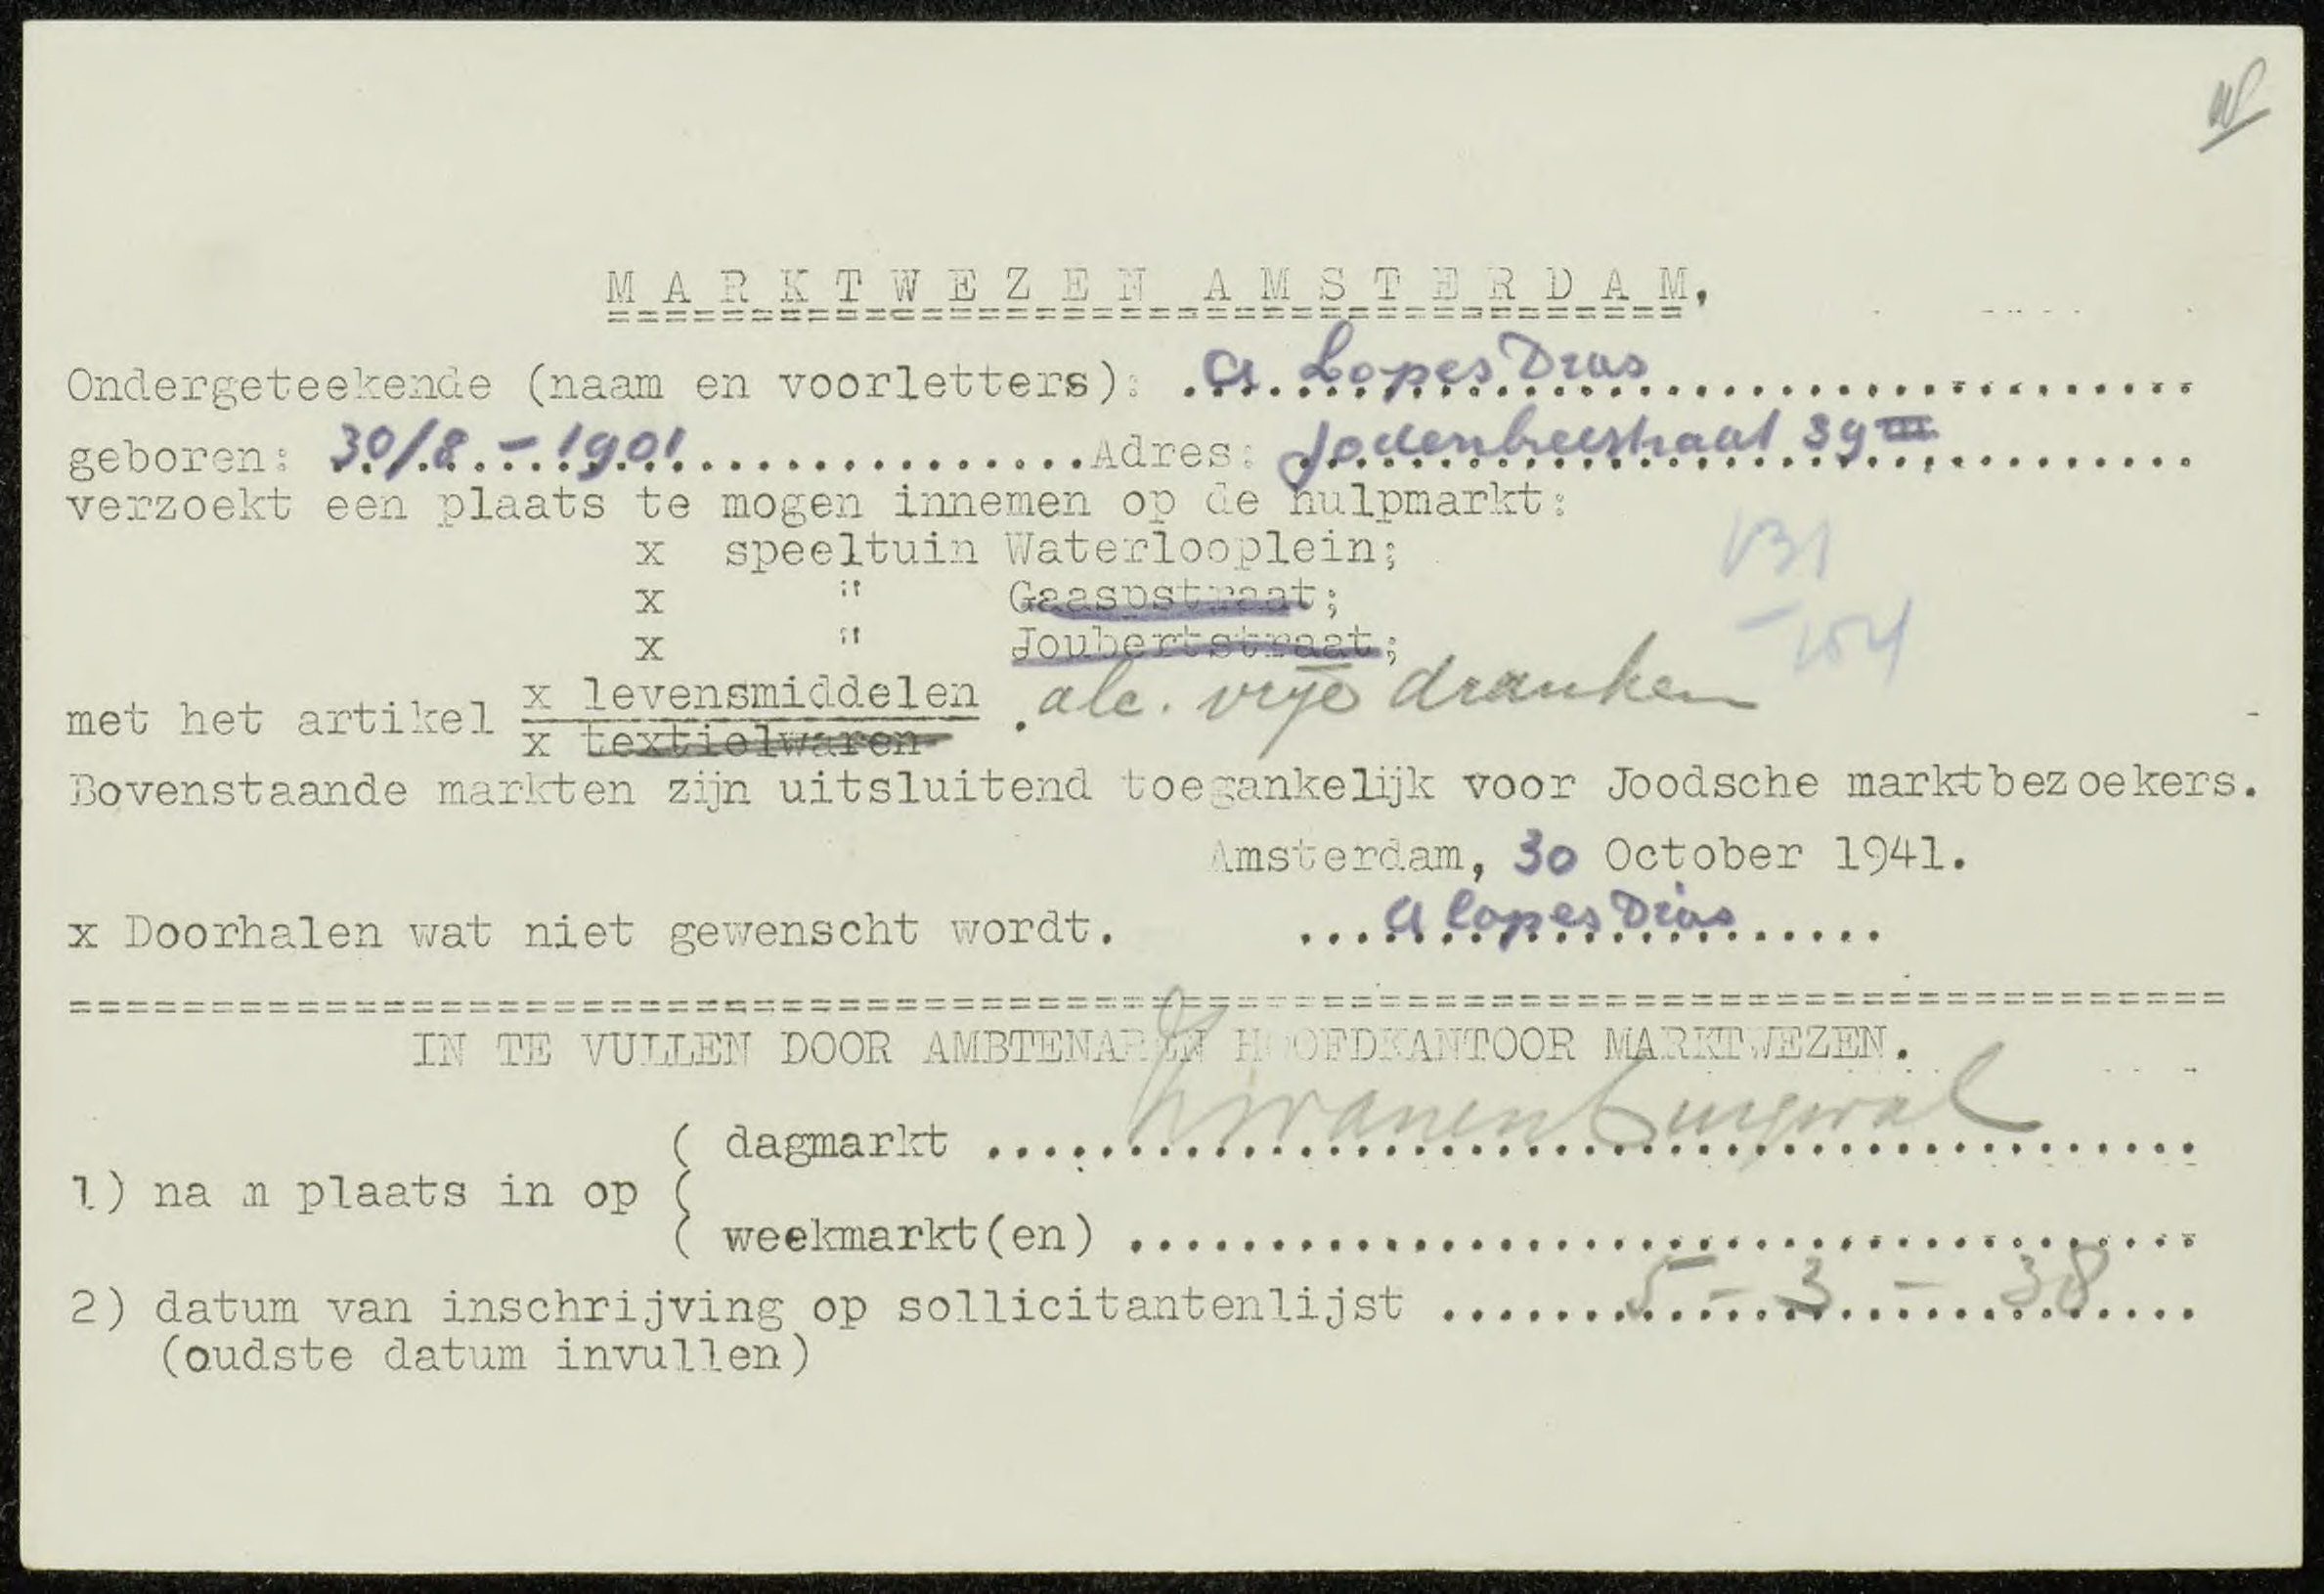 MARKTWEZEN AMSTERDAM.
Ondergeteekende (naam en voorletters): A Lopes Dias
geboren: 30/8 - 1901 Adres: Jodenbreestraat 39 III
verzoekt een plaats te mogen innemen op de hulpmarkt:
x speeltuin Waterlooplein;
x " Gaaspstraat;
x " Joubertstraat;
met het artikel x levensmiddelen . alc. vrije dranken
x textielwaren
Bovenstaande markten zijn uitsluitend toegankelijk voor Joodsche marktbezoekers.
Amsterdam, 30 October 1941.
x Doorhalen wat niet gewenscht wordt. A Lopes Dias
IN TE VULLEN DOOR AMBTENAREN HOOFDKANTOOR MARKTWEZEN.
( dagmarkt Zwanenburgwal
1) na m plaats in op (
( weekmarkt(en)
2) datum van inschrijving op sollicitantenlijst 5 - 3 - 38
(oudste datum invullen)